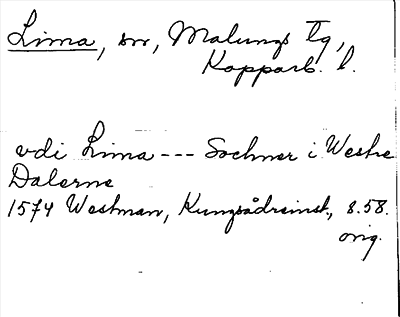 Lima, sn, Malungs tg,
Kopparb. l.
vdi Lima --- Sochner i Westre
Dalerne
1574 Westman, Kungsådreinst., s. 58.
orig.